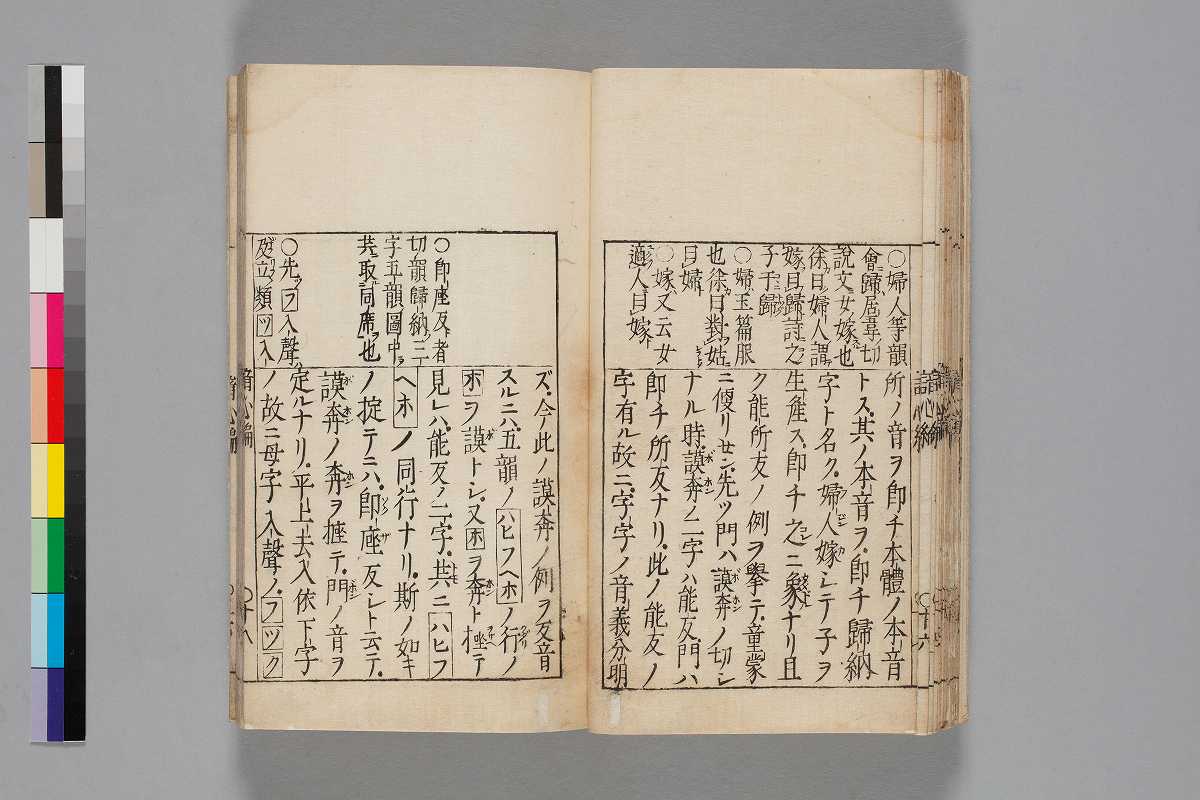 〇婦人等韻
會歸居韋切
説文女嫁也
徐曰婦人謂
嫁曰歸詩之
子于歸
〇婦玉篇服
也徐曰對姑
曰婦
〇嫁又云女
適人曰嫁
所ノ音ヲ卽チ本體ノ本音
トス其ノ本音ヲ卽チ歸納
字ト名ク婦人嫁シテ子ヲ
生產ス卽チ之ニ象ナリ且
ク能所反ノ例ヲ擧テ童蒙
ニ便リセン先ツ門ハ謨奔ノ切シ
ナル時謨奔ノ二字ハ能反門ハ
卽チ所反ナリ此ノ能反ノ
字有ル故ニ字字ノ音義分明
諧心編
〇十六
〇卽座反者
切韻歸納三
字五韻圖中
共取同席也
〇先フ入聲
及立類ツ入
ズ今此ノ謨奔ノ例ヲ反音
スルニ五韻ノハヒフヘホノ行ノ
ホヲ謨トシ又ホヲ奔ト摧テ
見レハ能反ノ二字共ニハヒフ
ヘホノ同行ナリ斯ノ如キ
ノ掟テニハ卽座反シト云テ
謨奔ノ奔ヲ摧テ門ノ音ヲ
定ルナリ平上去入依下字
ノ故ニ母字入聲ノフツク
諧心編
〇十八